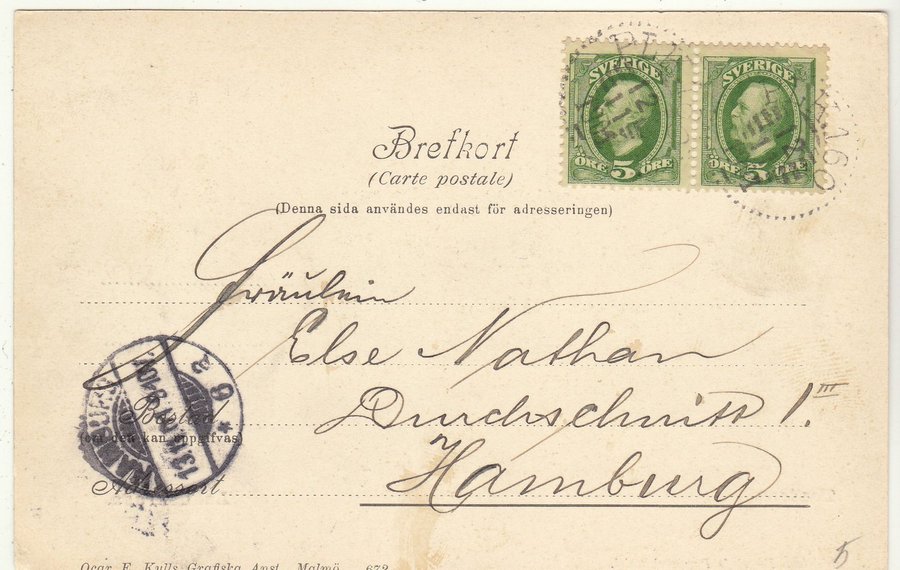 SVERIGE SVERIGE
ÖRE 5 ÖRE ÖRE 5 ÖRE
Brefkort
(Carte postale)
(Denna sida användes endast för adresseringen)
Fräulein
Else Nathan
Durchschnitt 1 III
Hamburg
Bostad
(om den kan uppgifvas)
Adressort
HAMBURG
Oscar F. Kulls Grafiska Anst. Malmö. 672
5